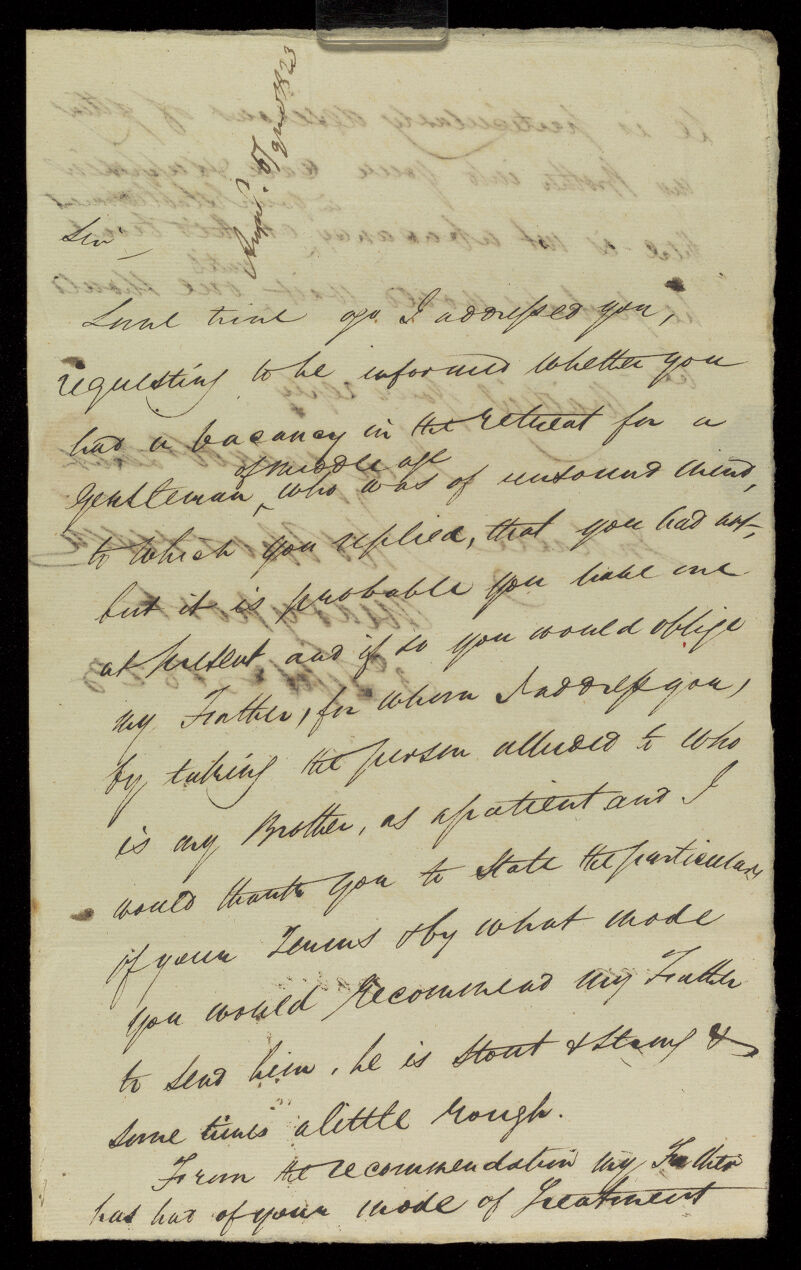 Sir
Some time ago I addressed you,
requesting to be informed whether you
had a vacancy in the retreat for a
of middle age
Gentleman, who was of unsound mind,
to which you replied, that you had not,
but it is probable you have one
at present and if so you would oblige
my Father, for whom I address you,
by taking the person alluded to who
is my Brother, as a patient and I
would thank you to state the particulars
of your Terms & by what mode
you would recommend my Father
to send him, he is stout & strong &
some times a little rough.
From the recommendation my Father
has had of your mode of Treatment